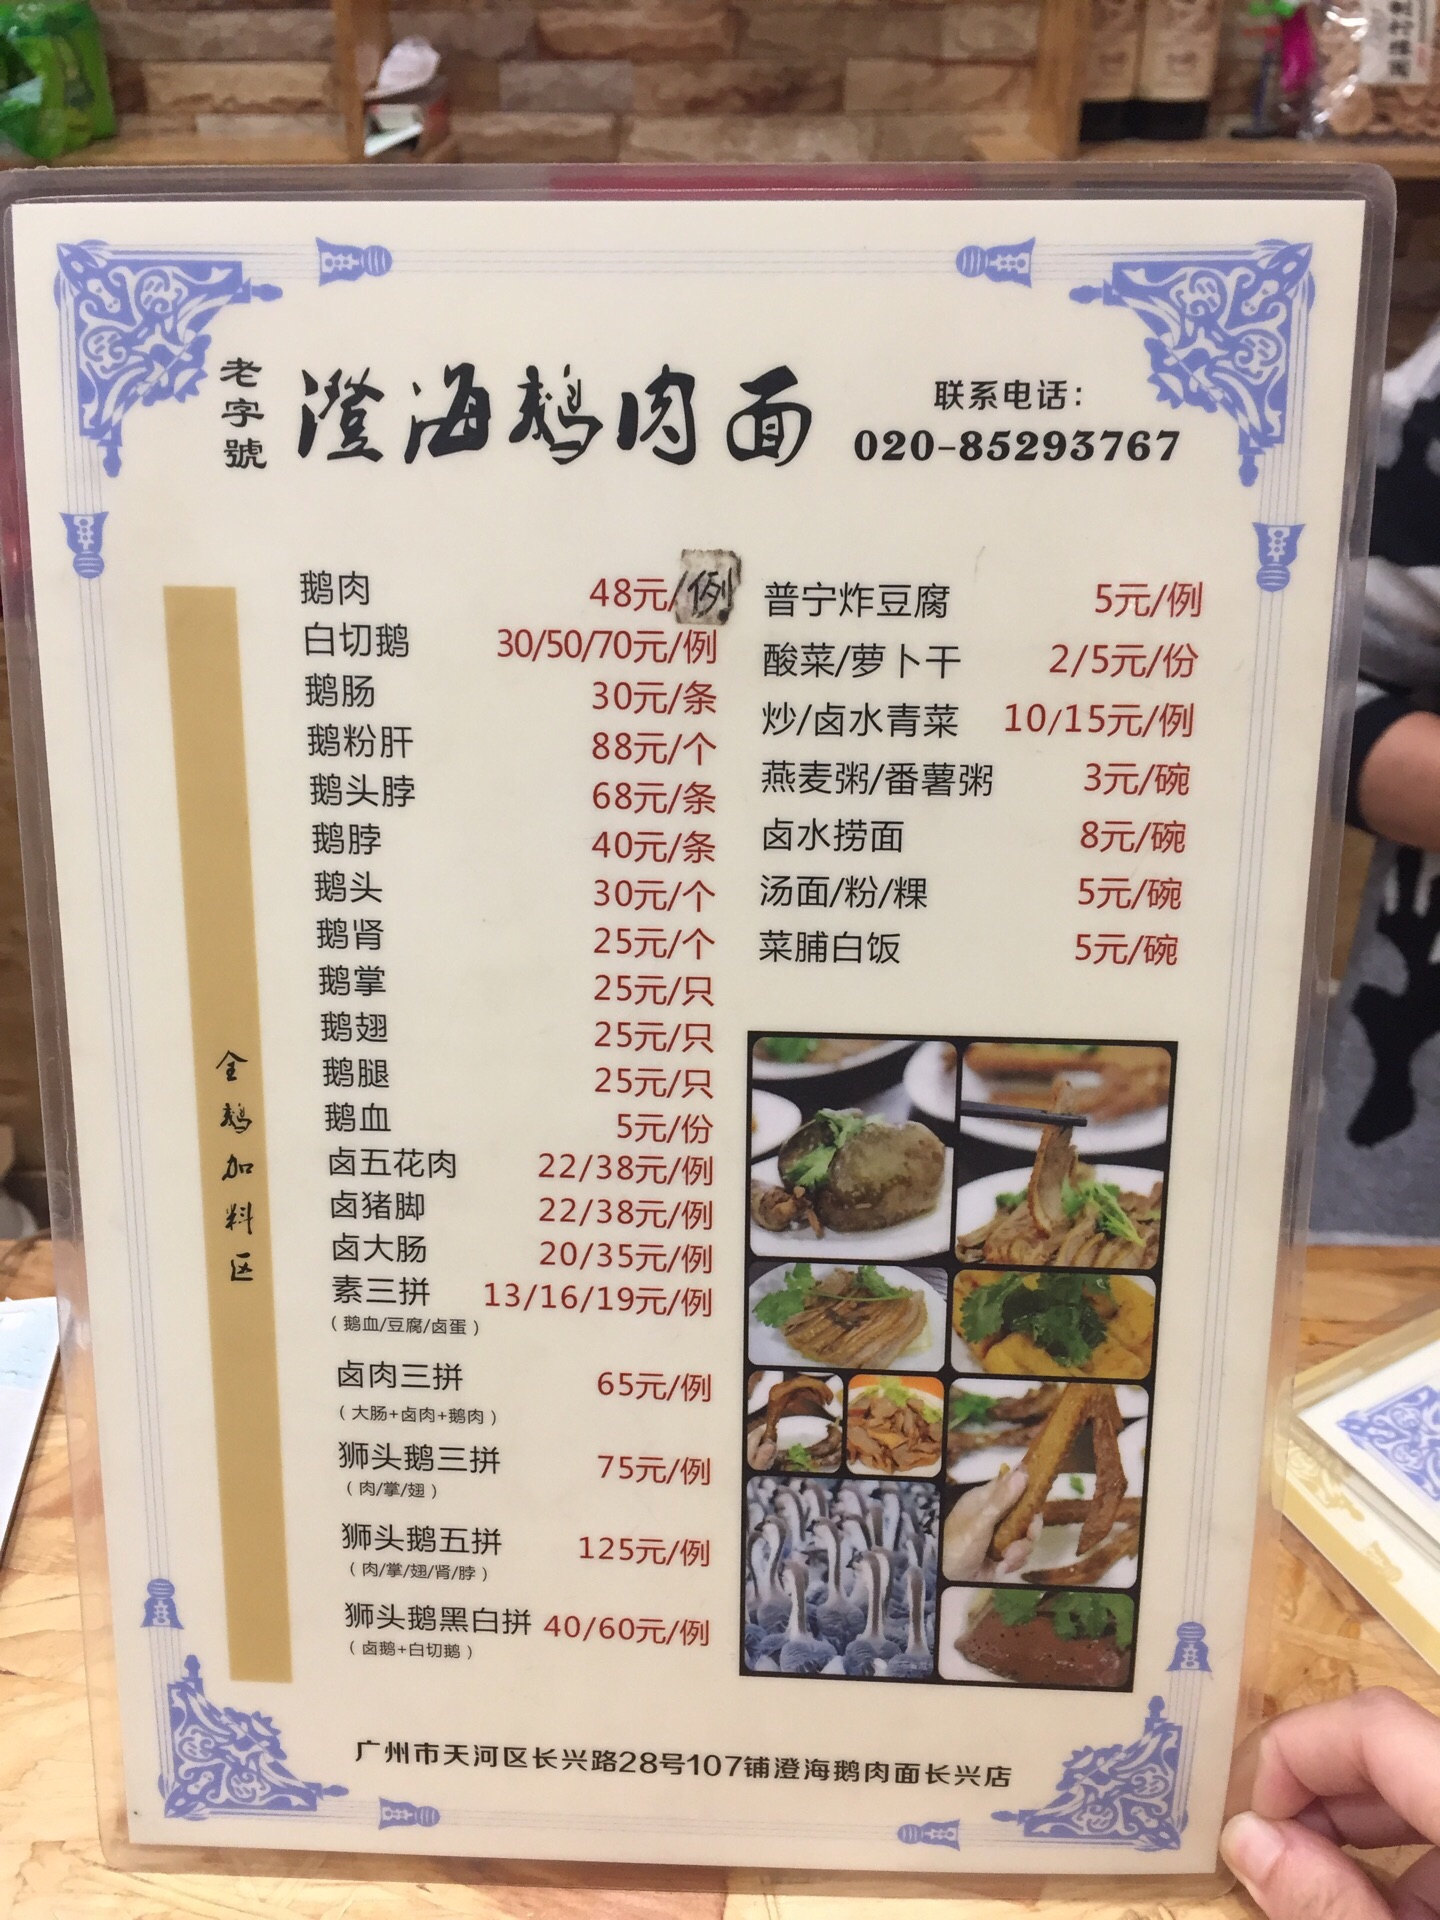 老字號
澄海鹅肉面
联系电话：
020-85293767
全鹅加料区
鹅肉 48元/例
白切鹅 30/50/70元/例
鹅肠 30元/条
鹅粉肝 88元/个
鹅头脖 68元/条
鹅脖 40元/条
鹅头 30元/个
鹅肾 25元/个
鹅掌 25元/只
鹅翅 25元/只
鹅腿 25元/只
鹅血 5元/份
卤五花肉 22/38元/例
卤猪脚 22/38元/例
卤大肠 20/35元/例
素三拼 13/16/19元/例
（鹅血/豆腐/卤蛋）
卤肉三拼 65元/例
（大肠+卤肉+鹅肉）
狮头鹅三拼 75元/例
（肉/掌/翅）
狮头鹅五拼 125元/例
（肉/掌/翅/肾/脖）
狮头鹅黑白拼 40/60元/例
（卤鹅+白切鹅）
普宁炸豆腐 5元/例
酸菜/萝卜干 2/5元/份
炒/卤水青菜 10/15元/例
燕麦粥/番薯粥 3元/碗
卤水捞面 8元/碗
汤面/粉/粿 5元/碗
菜脯白饭 5元/碗
广州市天河区长兴路28号107铺澄海鹅肉面长兴店